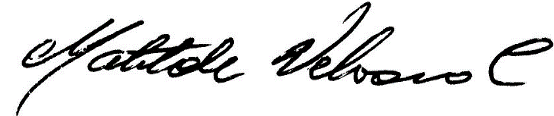 Matilde Velasco C